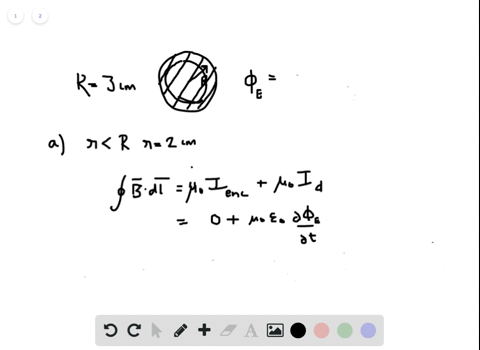 1 2
R = 3 cm R ϕ_E =
a) r < R r = 2 cm
∮ B̅ · dl̅ = μ₀ I_enc + μ₀ I_d
= 0 + μ₀ ε₀ ∂ϕ_E/∂t
A